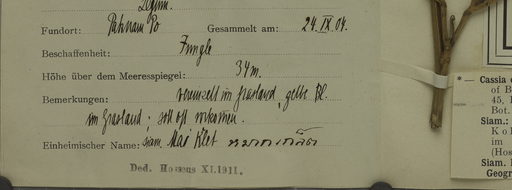 Fundort: Paknam Po Gesammelt am: 24.IX.04.
Beschaffenheit: Jungle
Höhe über dem Meeresspiegel: 34 m.
Bemerkungen: im Grasland, gelbe Bl.
im Grasland; soll oft vorkommen.
Einheimischer Name: siam. Mai Klet
Ded. Hosseus XI.1911.
*— Cassia
of B
45, 
Bot.
Siam.:
Kol
im
(Hos
Siam.
Geogr